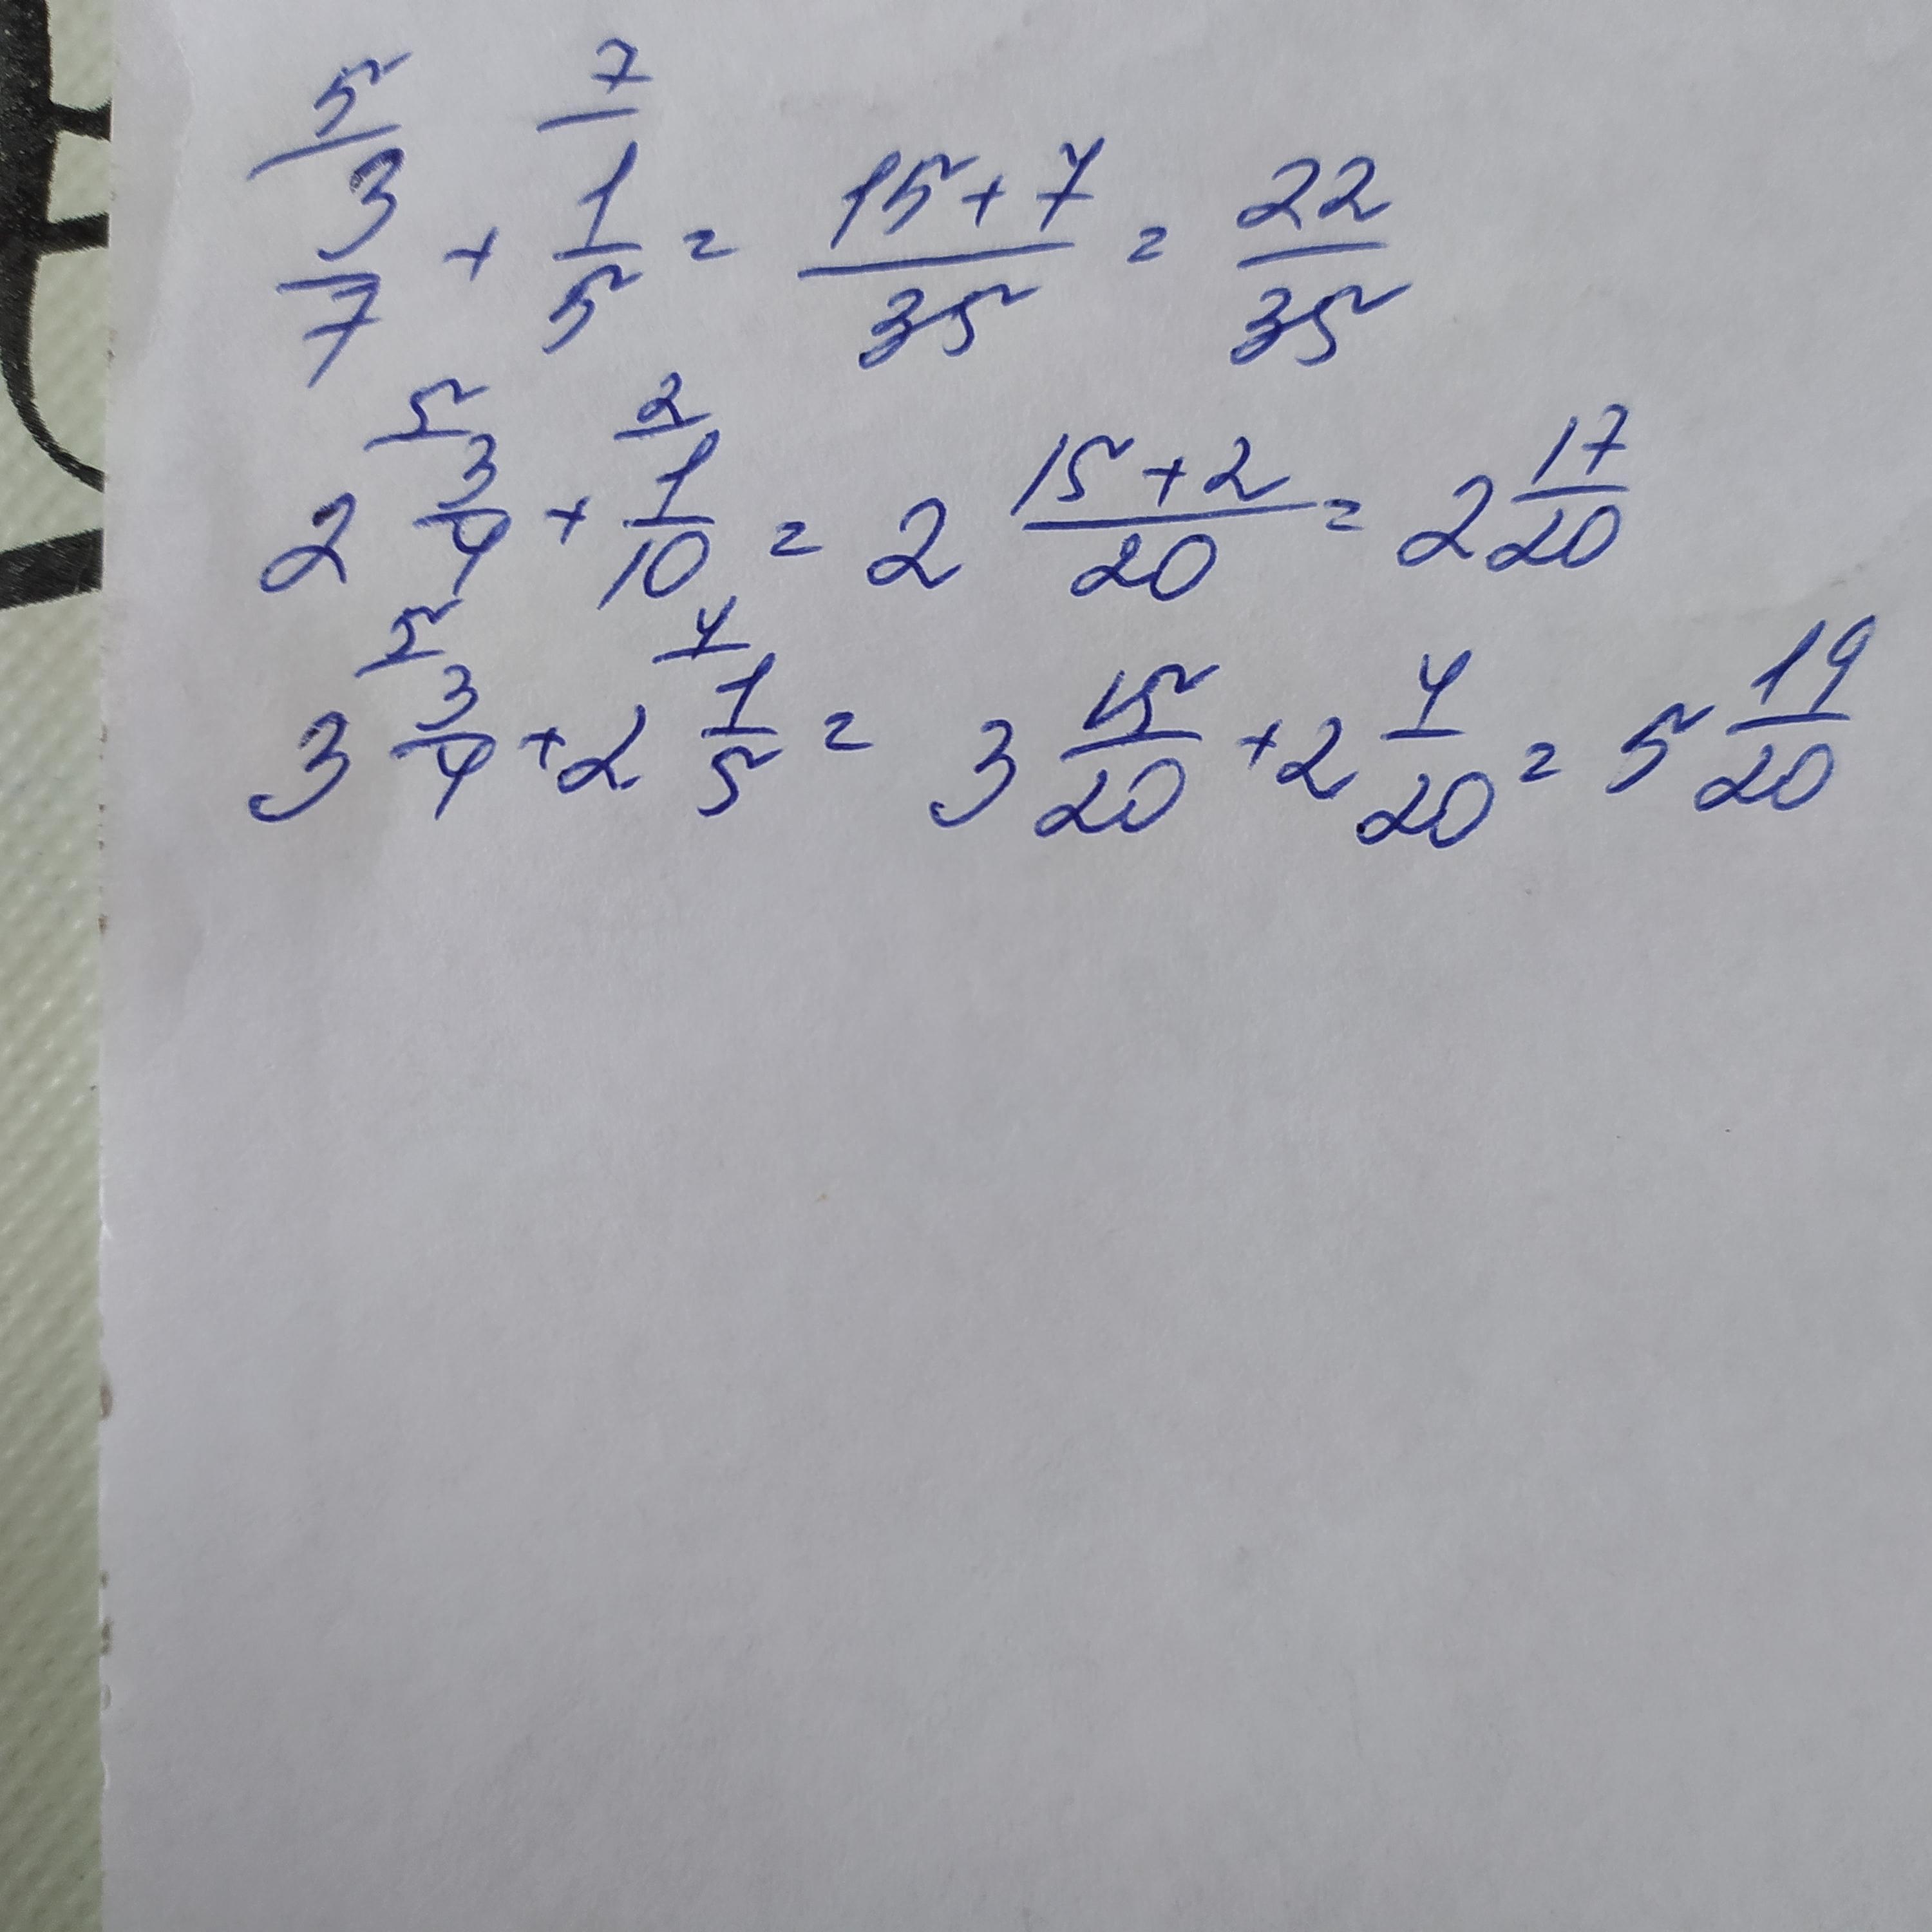 5/ 7/
3/7 + 1/5 = (15+7)/35 = 22/35
5/ 2/
2 3/4 + 1/10 = 2 (15+2)/20 = 2 17/20
5/ 4/
3 3/4 + 2 1/5 = 3 15/20 + 2 4/20 = 5 19/20